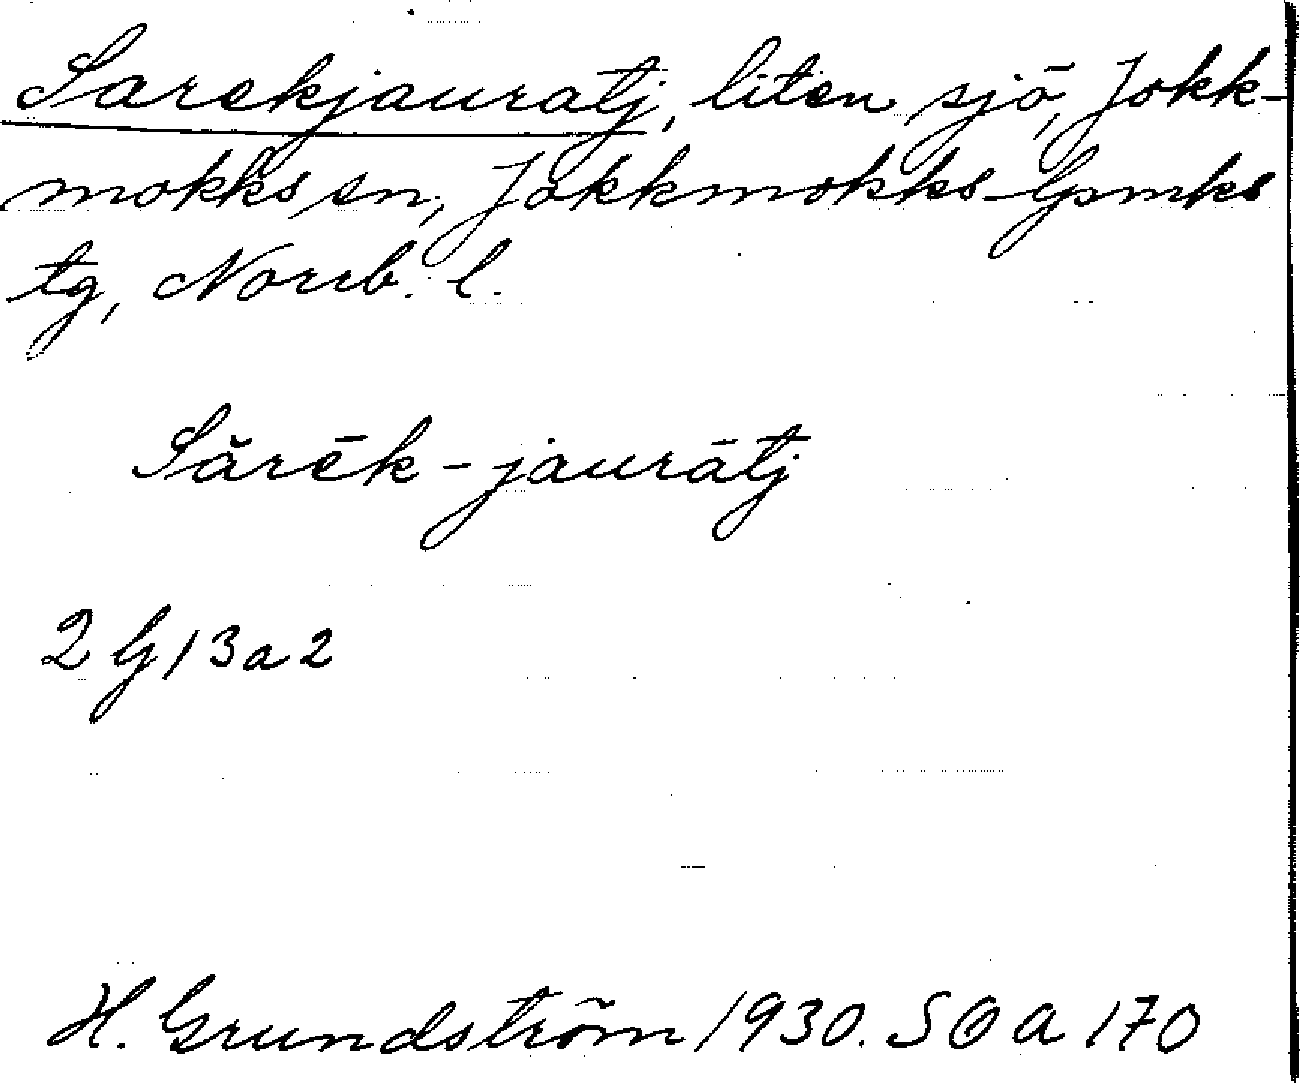 Sarekjauratj, liten sjö, Jokk-
mokks sn, Jokkmokks-Gsmks
tg, Norrb. l.
Sărēk-jaurātj
2 G 13 a 2
H. Grundström 1930. SOA 170